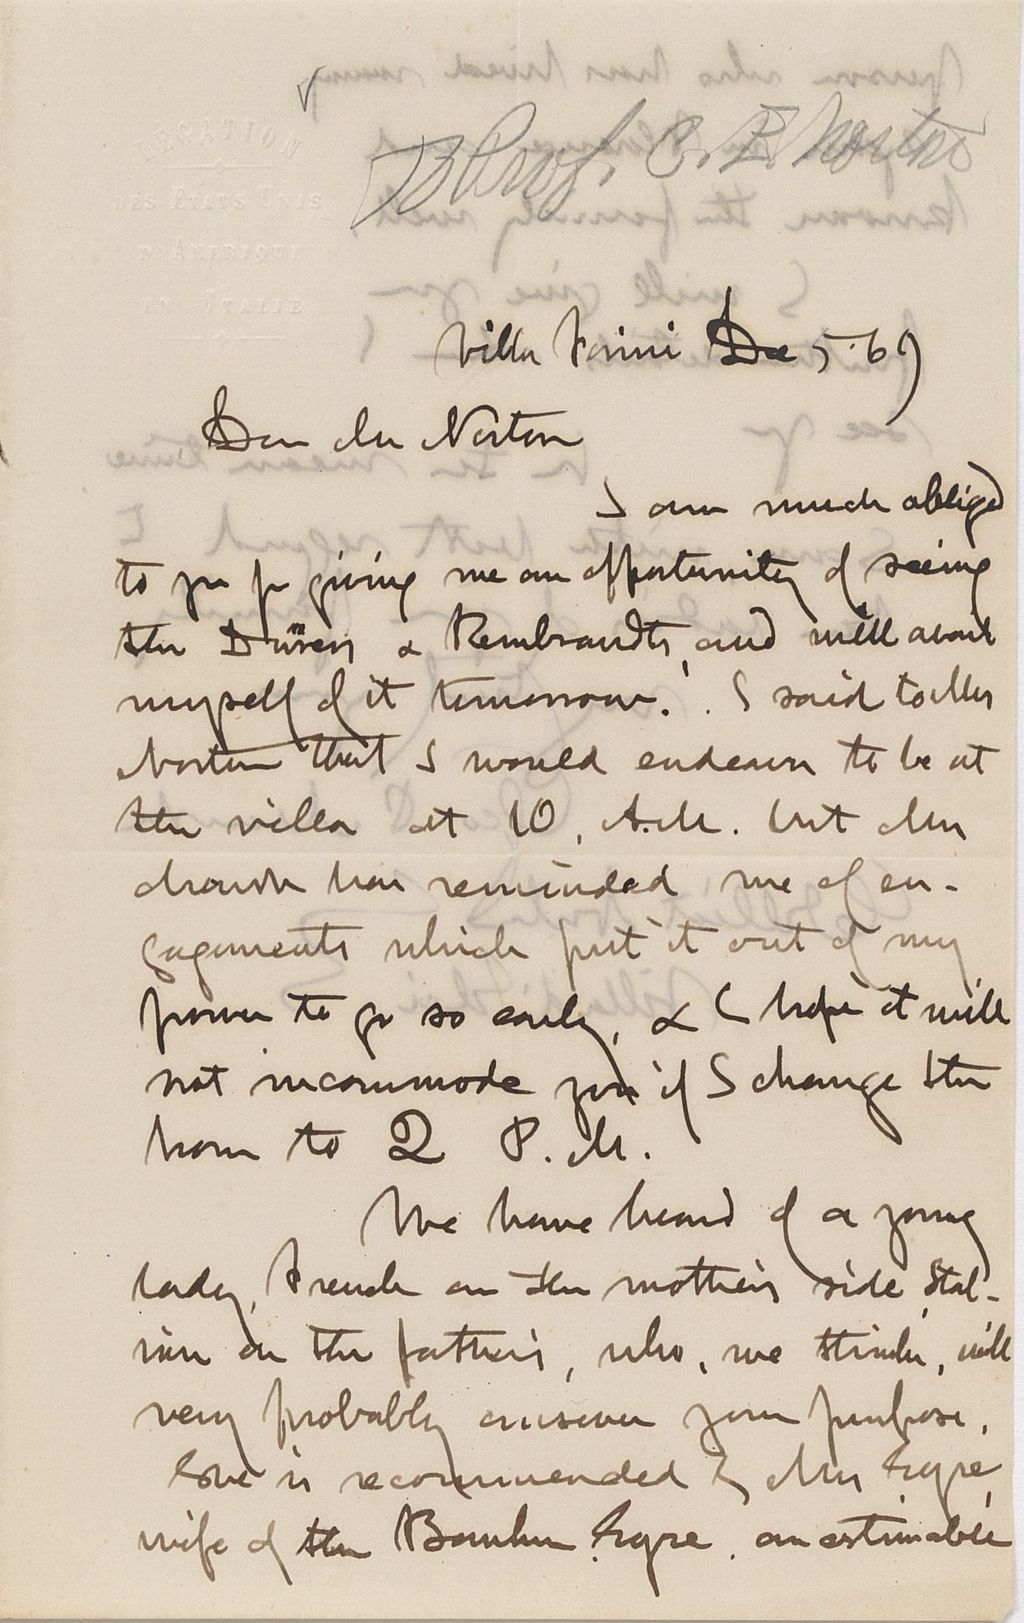 LEGATION
DES ETATS UNIS
D'AMERIQUE
EN ITALIE
Prof. C. E. Norton
Villa Forini Dec 5. 69
Dear Mr Norton
I am much obliged
to you for giving me an opportunity of seeing
the Dürers & Rembrandts, and will avail
myself of it tomorrow. I said to Mrs
Norton that I would endeavor to be at
the villa at 10, A.M. but Mrs
Marsh has reminded me of en-
gagements which put it out of my
power to go so early, & I hope it will
not incommode you if I change the
hour to 2 P.M.
We have heard of a young
lady, French on the mother's side, Ital-
ian on the father's, who, we think, will
very probably answer your purpose.
She is recommended by Mrs Eyre,
wife of the Banker Eyre, an estimable